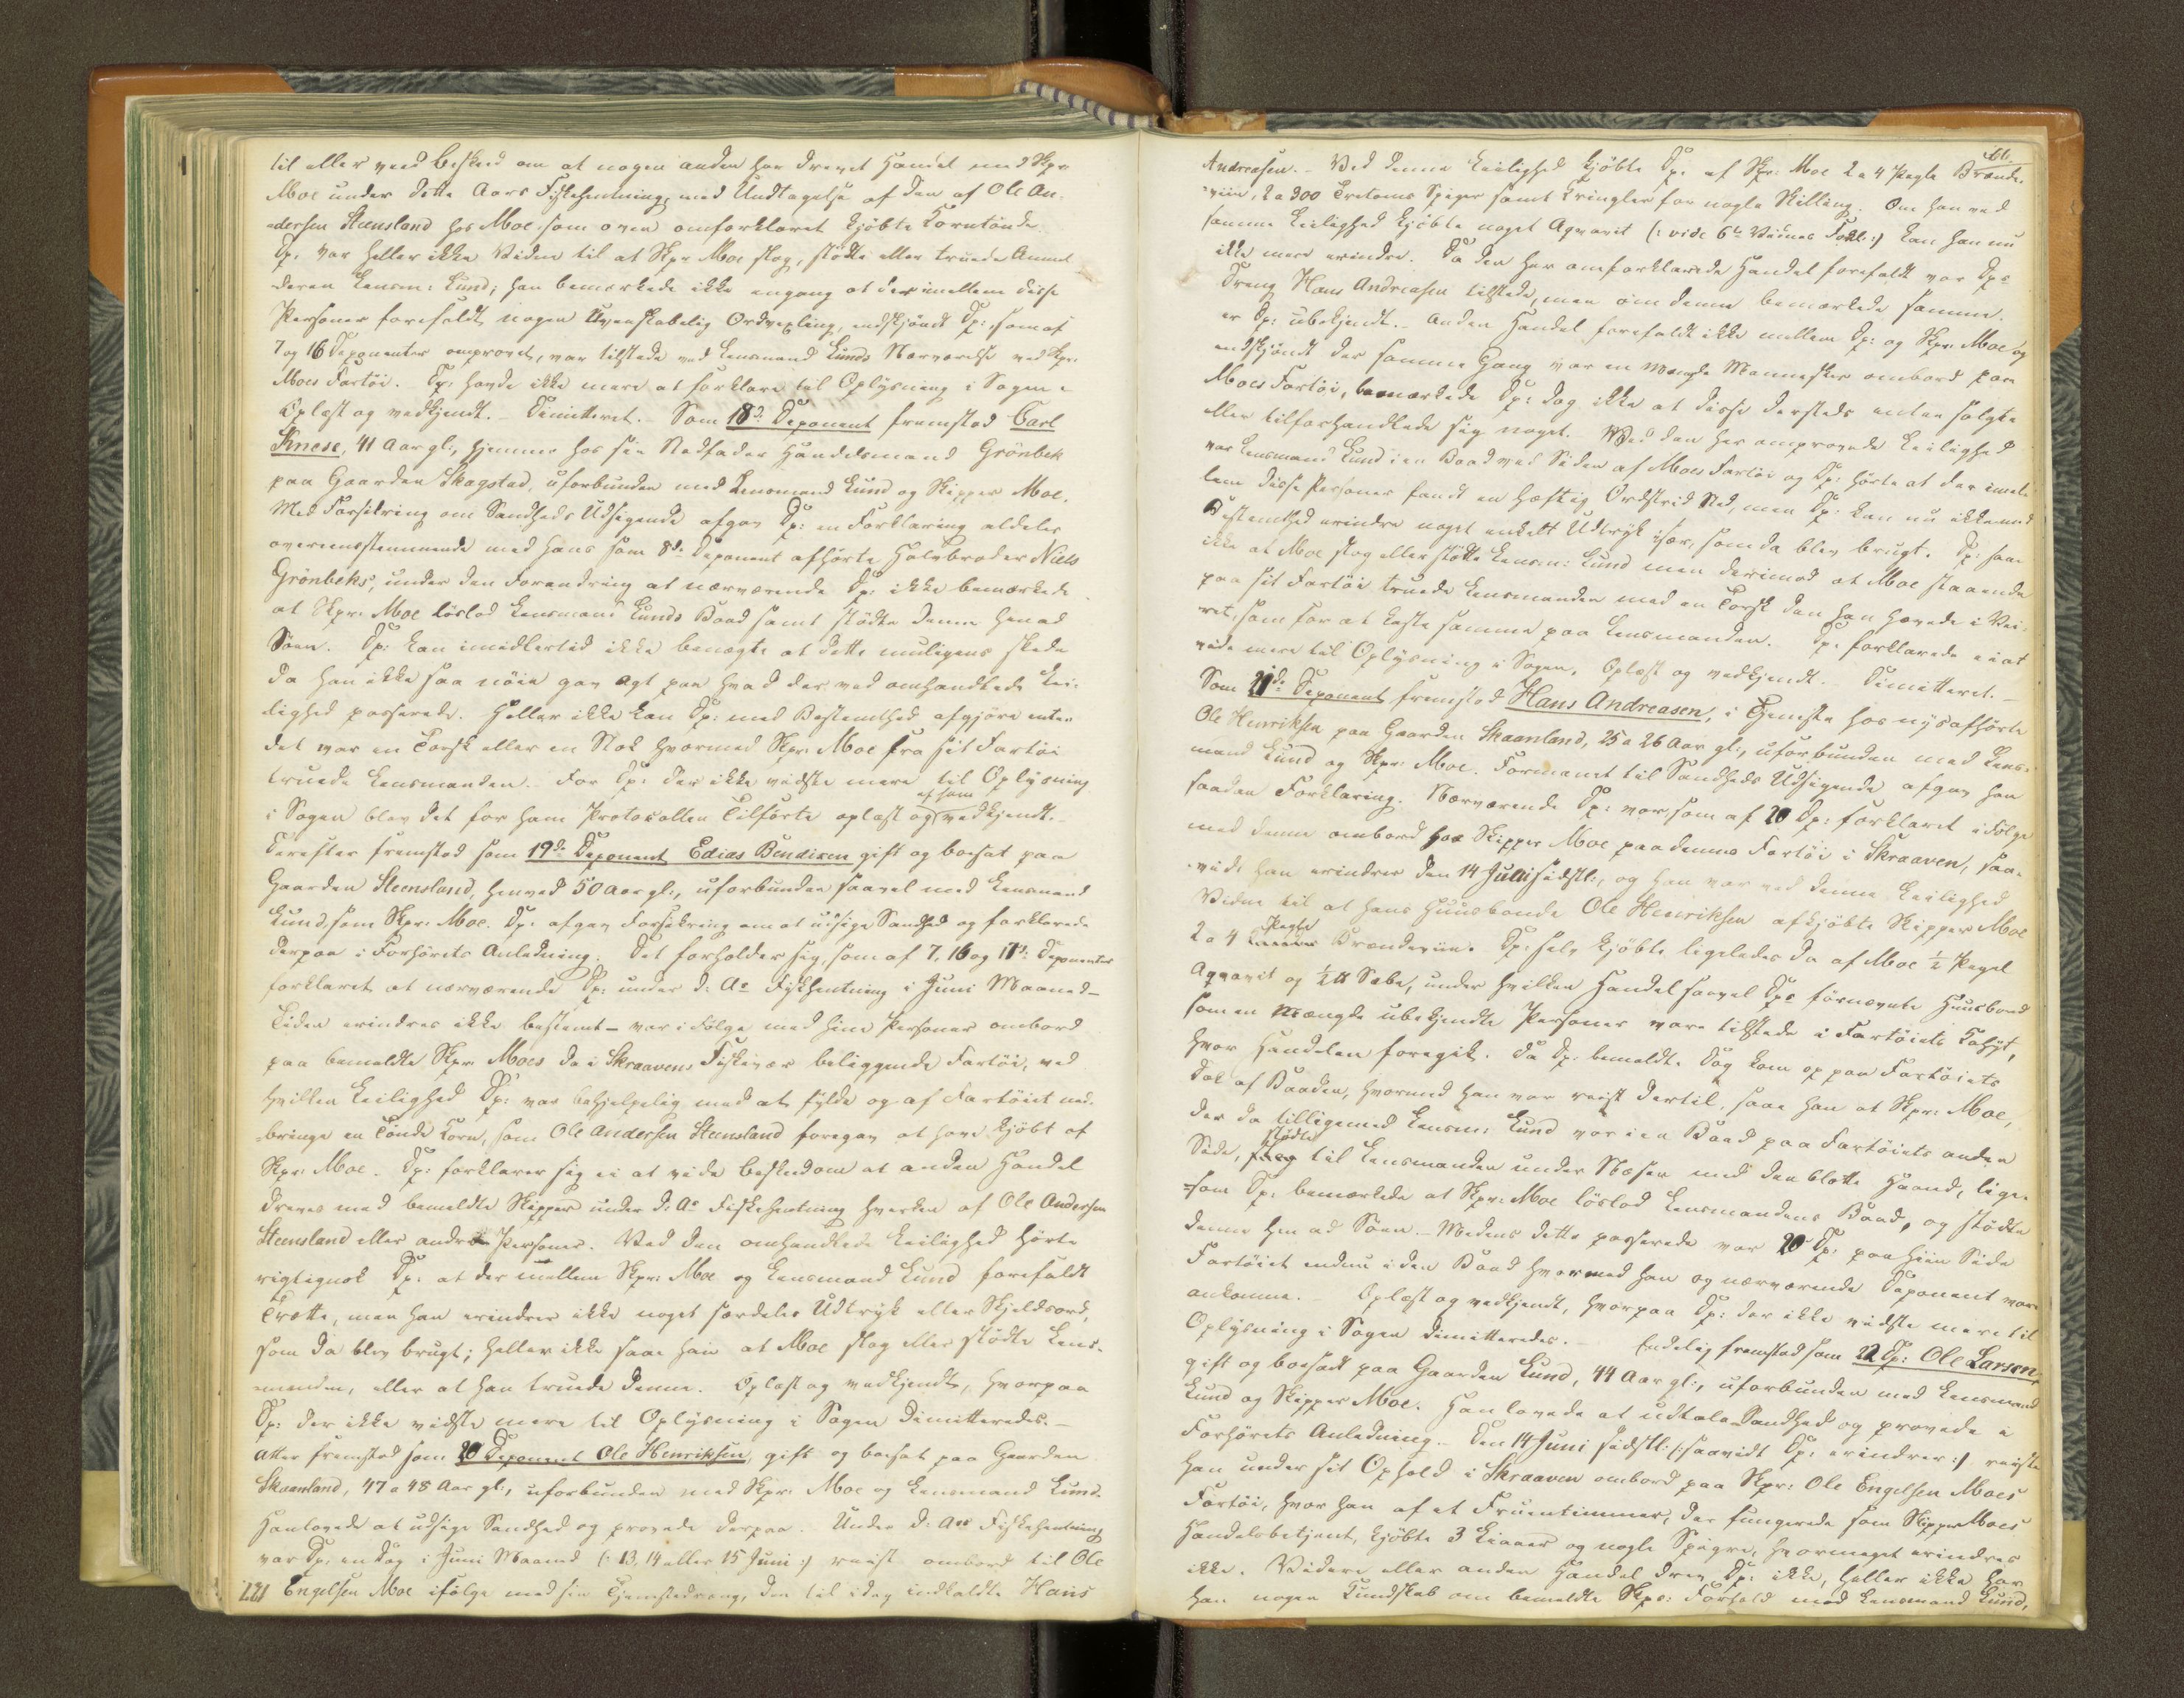 til eller veed Besked om at nogen anden har drevet Handel med Skpr
Moe under dette Aars Fiskehentning, med Undtagelse af den af Ole An-
-dersen Steensland hos Moe, som oven omforklaret kjöbte Korntönde.
Dp. var heller ikke Vidne til at Skpr Moe slog, stödte eller truede Anmel-
deren Lensm: Lund; han bemærkede ikke engang at der imellem disse
Personer forefaldt nogen uvenskabelig Ordvexling, endskjöndt Dp:, som af
7 og 16 Deponenter omprovet, var tilstede ved Lensmand Lunds Nærværelse ved Skpr.
Moes Fartöi. Dp. havde ikke mere at forklare til Oplysning i Sagen.
Oplæst og vedkjendt. Dimitteret. Som 18de Deponent fremstod Carl
Knese, 41 Aar gl:, hjemme hos sin Stedfader Handelsmand Grönbek
paa Gaarden Skagstad, uforbunden med Lensmand Lund og Skipper Moe.
Med Forsikring om Sandheds Udsigende afgav Dp: en Forklaring aldeles
overeensstemmende med hans som 8de Deponent afhörte Halvbroder Niels
Grönbeks, under den Forandring at nærværende Dp: ikke bemærkede
at Skpr. Moe löslod Lensmand Lunds Baad samt stödte denne hen ad
Söen. Dp: kan imidlertid ikke benægte at dette muligens skede
da han ikke saa nöie gav Agt paa hvad der ved omhandlede Lei-
lighed passerede. Heller ikke kan Dp: med Bestemthed afgjöre enten
det var en Torsk eller en Stok hvormed Skpr. Moe fra sit Fartöi
truede Lensmanden. For Dp: der ikke vidste mere til Oplysning
af ham
i Sagen blev det for ham Protocollen Tilförte oplæst og vedkjendt.
Derefter fremstod som 19de Deponent Edias Bendixen gift og boesat paa
Gaarden Steensland, henved 50 Aar gl:, uforbunden saavel med Lensmand
Lund, som Skpr. Moe. Dp: afgav Forsikring om at udsige Sandhed og forklarede
derpaa i Forhörets Anledning: Det forholder sig, som af 7, 16 og 17de Deponenter
forklaret at nærværende Dp: under d: A: Fiskehentning i Juni Maaned -
Tiden erindres ikke bestemt - var i Fölge med hine Personer ombord
paa bemeldte Skpr. Moes da i Skraavens Fiskevær beliggende Fartöi, ved
hvilken Leilighed Dp: var behjelpelig med at fylde og af Fartöiet ned-
-bringe en Tönde Korn, som Ole Andersen Steensland foregav at have kjöbt af
Skpr. Moe. Dp: forklarer sig ei at vide Besked om at anden Handel
dreves med bemeldte Skipper under d: A: Fiskehentning hverken af Ole Andersen
Steensland eller andre Personer. Ved den omhandlede Leilighed hörte
rigtignok Dp: at der mellem Skpr. Moe og Lensmand Lund forefaldt
Trætte, men han erindrer ikke noget særdeles Udtryk eller Skjeldsord,
som da blev brugt; heller ikke saae han at Moe slog eller stödte Lens-
manden, eller at han truede denne. Oplæst og vedkjendt, hvorpaa
Dp: der ikke vidste mere til Oplysning i Sagen dimitteredes.-
Atter fremstod som 20 Deponent Ole Henriksen, gift og boesat paa Gaarden
Skaanland, 47 a 48 Aar gl:, uforbunden med Skpr. Moe og Lensmand Lund.
Han lovede at udsige Sandhed og provede derpaa. Under d: A: Fiskehentning
var Dp. en Dag i Juni Maaned (: 13, 14 eller 15 Juni :) reist ombord til Ole
Engelsen Moe i fölge med sin Tjenestedreng, den til idag indkaldte Hans
221
66.
Andreasen.- Ved denne Leilighed kjöbte Dp: af Skpr. Moe 2 a 4 Pægle Brænde-
-viin, 2 a 300 Tretoms Spiger samt Kringler for nogle Skilling. Om han ved
samme Leilighed kjöbte noget Aqvavit (: vide 6te Vidnes Forkl: :) kan han nu
ikke mere erindre. Da den her omforklarede Handel forefaldt var Dps
Dreng Hans Andreasen tilstede, men om denne bemærkede samme.
er Dp: ubekjendt.- Anden Handel forefaldt ikke mellem Dp: og Skpr. Moe og
endskjöndt der samme Gang var en Mængde Mennesker ombord paa
Moes Fartöi, bemærkede Dp: dog ikke at disse dersteds enten solgte
eller tilforhandlede sig noget. Ved den her omprovede Leilighed
var Lensmand Lund i en Baad ved Siden af Moes Fartöi og Dp: hörte at der imel-
lem disse Personer fandt en hæftig Ordstrid Sted, men Dp: kan nu ikke med
Bestemthed erindre noget enkelt Udtryk især, som da blev brugt. Dp: saae
ikke at Moe slog eller stödte Lensm: Lund men derimod at Moe staaende
paa sit Fartöi truede Lensmanden med en Torsk den han hævede i Vei-
ret, som for at kaste samme paa Lensmanden. Dp. forklarede ei at
vide mere til Oplysning i Sagen. Oplæst og vedkjendt.- Dimitteret.-
Som 21de Deponent fremstod Hans Andreasen, i Tjeneste hos nysafhörte
Ole Henriksen paa Gaarden Skaanland, 25 a 26 Aar gl:, uforbunden med Lens-
mand Lund og Skpr. Moe. Formanet til Sandheds Udsigende afgav han
saadan Forklaring. Nærværende Dp: var, som af 20 Dp: forklaret i Fölge
med denne ombord hos Skipper Moe paa dennes Fartöi i Skraaven, saa-
-vidt han erindrer den 14 Juni sidstl:, og han var ved denne Leilighed
Vidne til at hans Huusbonde Ole Henriksen afkjöbte Skipper Moe
Pægle
2 a 4 Brændeviin. Dp: selv kjöbte ligeledes da af Moe ½ Pægel
Aqvavit og ½ ℔ Sæbe, under hvilken Handel saavel Dps fornævnte Huusbond
som en Mængde ubekjendte Personer vare tilstede i Fartöiets Kahyt,
hvor Handelen foregik. Da Dp: bemeldte Dag kom op paa Fartöiets
Dæk af Baaden, hvormed han var reist dertil, saae han at Skpr. Moe,
der da tilligemed Lensm: Lund var i en Baad paa Fartöiets anden
stödte
Side, slog til Lensmanden under Næsen med den blotte Haand, lige-
-som Dp: bemærkede at Skpr. Moe löslod Lensmandens Baad, og stödte
denne hen ad Söen.- Medens dette passerede var 20 Dp: paa hiin Side
Fartöiet endnu i den Baad hvormed han og nærværende Deponent vare
ankomne.- Oplæst og vedkjendt, hvorpaa Dp: der ikke vidste mere til
Oplysning i Sagen dimitteredes.- Endelig fremstod som 22 Dp: Ole Larsen,
gift og boesadt paa Gaarden Lund, 44 Aar gl:, uforbunden med Lensmand
Lund og Skipper Moe. Han lovede at udtale Sandhed og provede i
Forhörets Anledning.- Den 14 Juni sidstl: (: saavidt Dp: erindrer :) reiste
han under sit Ophold i Skraaven ombord paa Skpr: Ole Engelsen Moes
Fartöi, hvor han af et Fruentimmer, der fungerede som Skipper Moes
Handelsbetjent, kjöbte 3 Leaaer og nogle Spigre, hvormeget erindres
ikke. Videre eller anden Handel drev Dp: ikke, heller ikke har
han nogen Kundskab om bemeldte Skprs: Forhold mod Lensmand Lund,